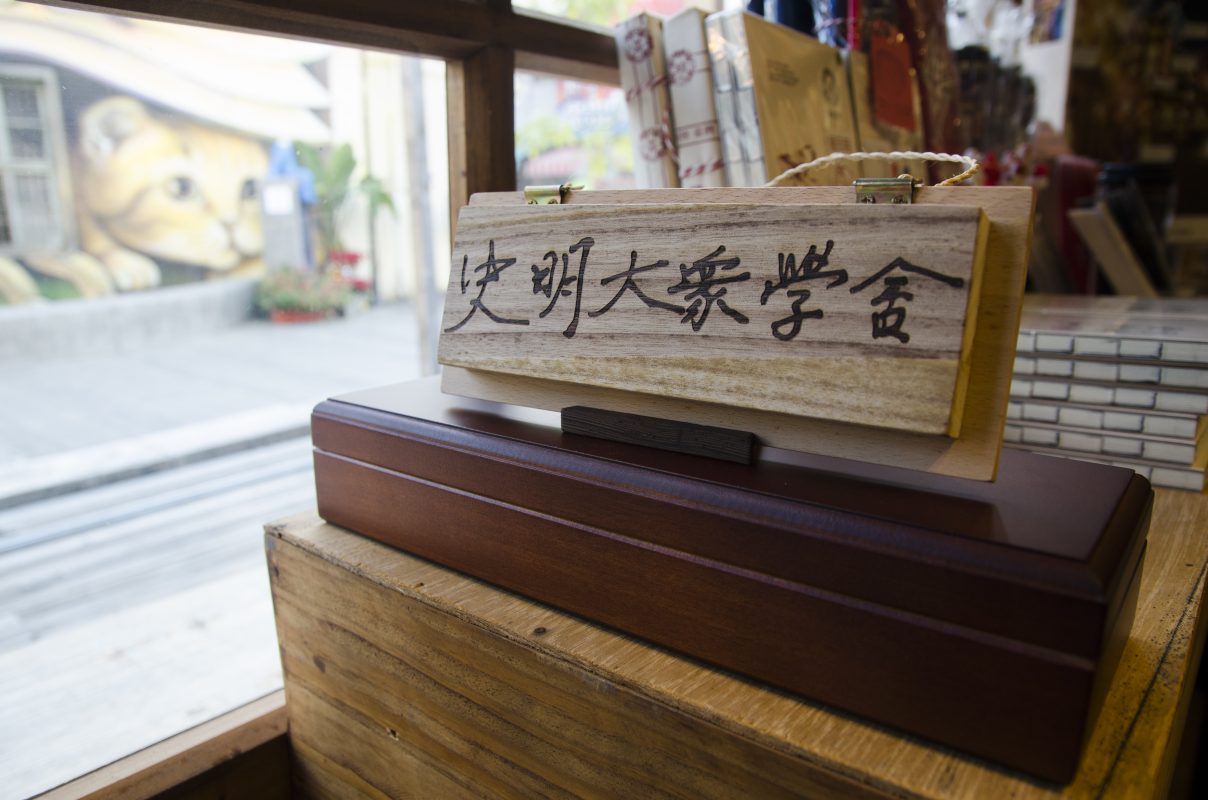 史明大眾學舍